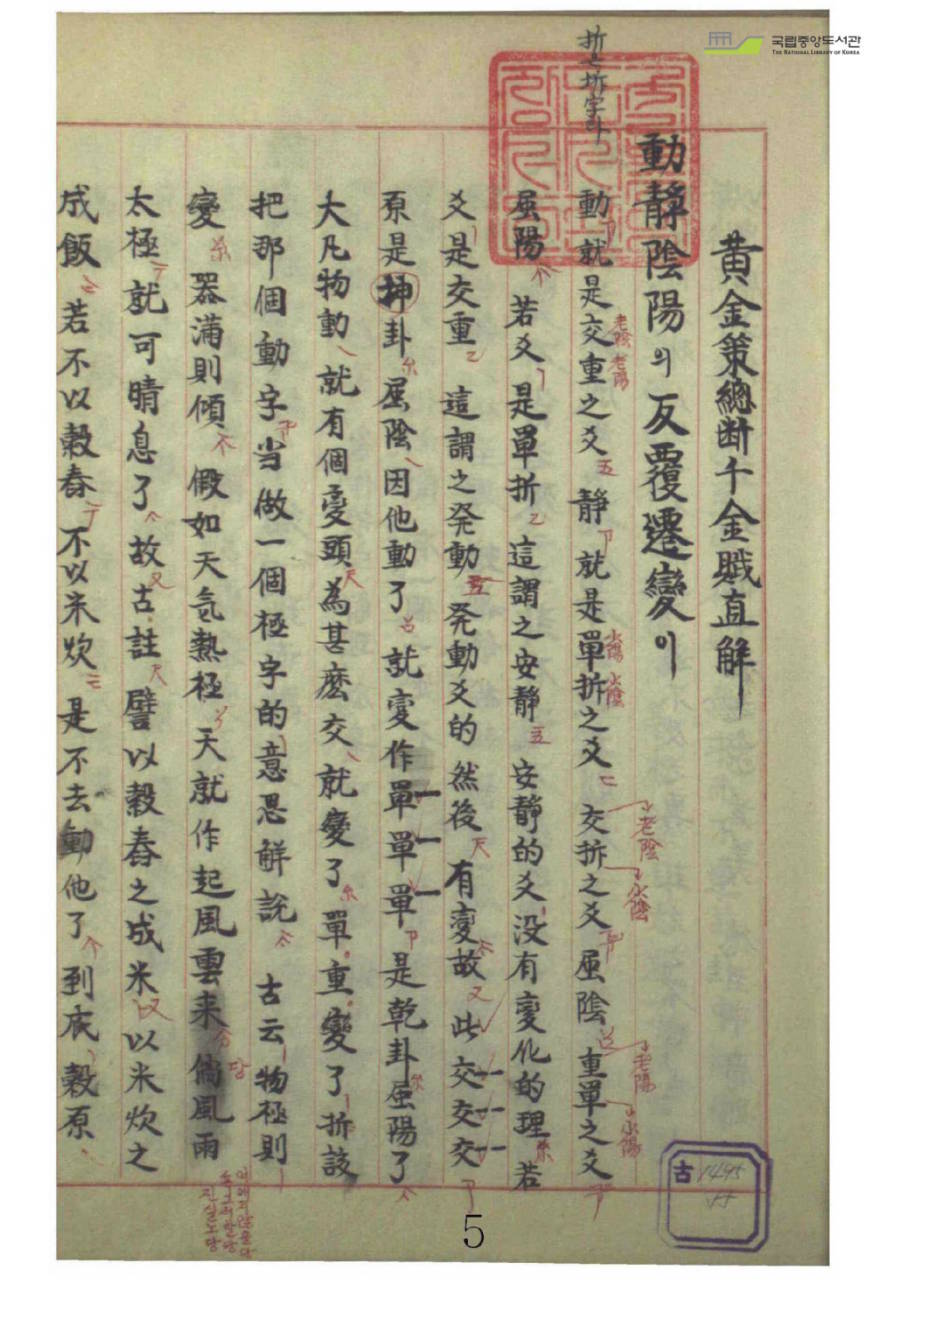 국립중앙도서관
THE NATIONAL LIBRARY OF KOREA
黄金策總断千金賦直解
動静陰陽의反覆遷變이
動就是交重之爻 静就是單折之爻 交折之爻屈陰 重單之爻
屈陽 若爻是單折 這謂之安静 安静的爻没有変化的理 若
爻是交重 這謂之発動 発動爻的然後有変故 此交交交
原是坤卦屈陰因他動了就変作單單單是乾卦屈陽了
大凡物動就有個変頭為甚麽交就變了單重變了折該
把那個動字当做一個極字的意思解説 古云物極則
變 器滿則傾 假如天気熱極天就作起風雲来倘風雨
太極就可晴息了故古註譬以穀舂之成米以米炊之
成飯 若不以穀舂不以米炊是不去動他了到底穀原
老陰
老陽
老陰
老陽
古
1495
5